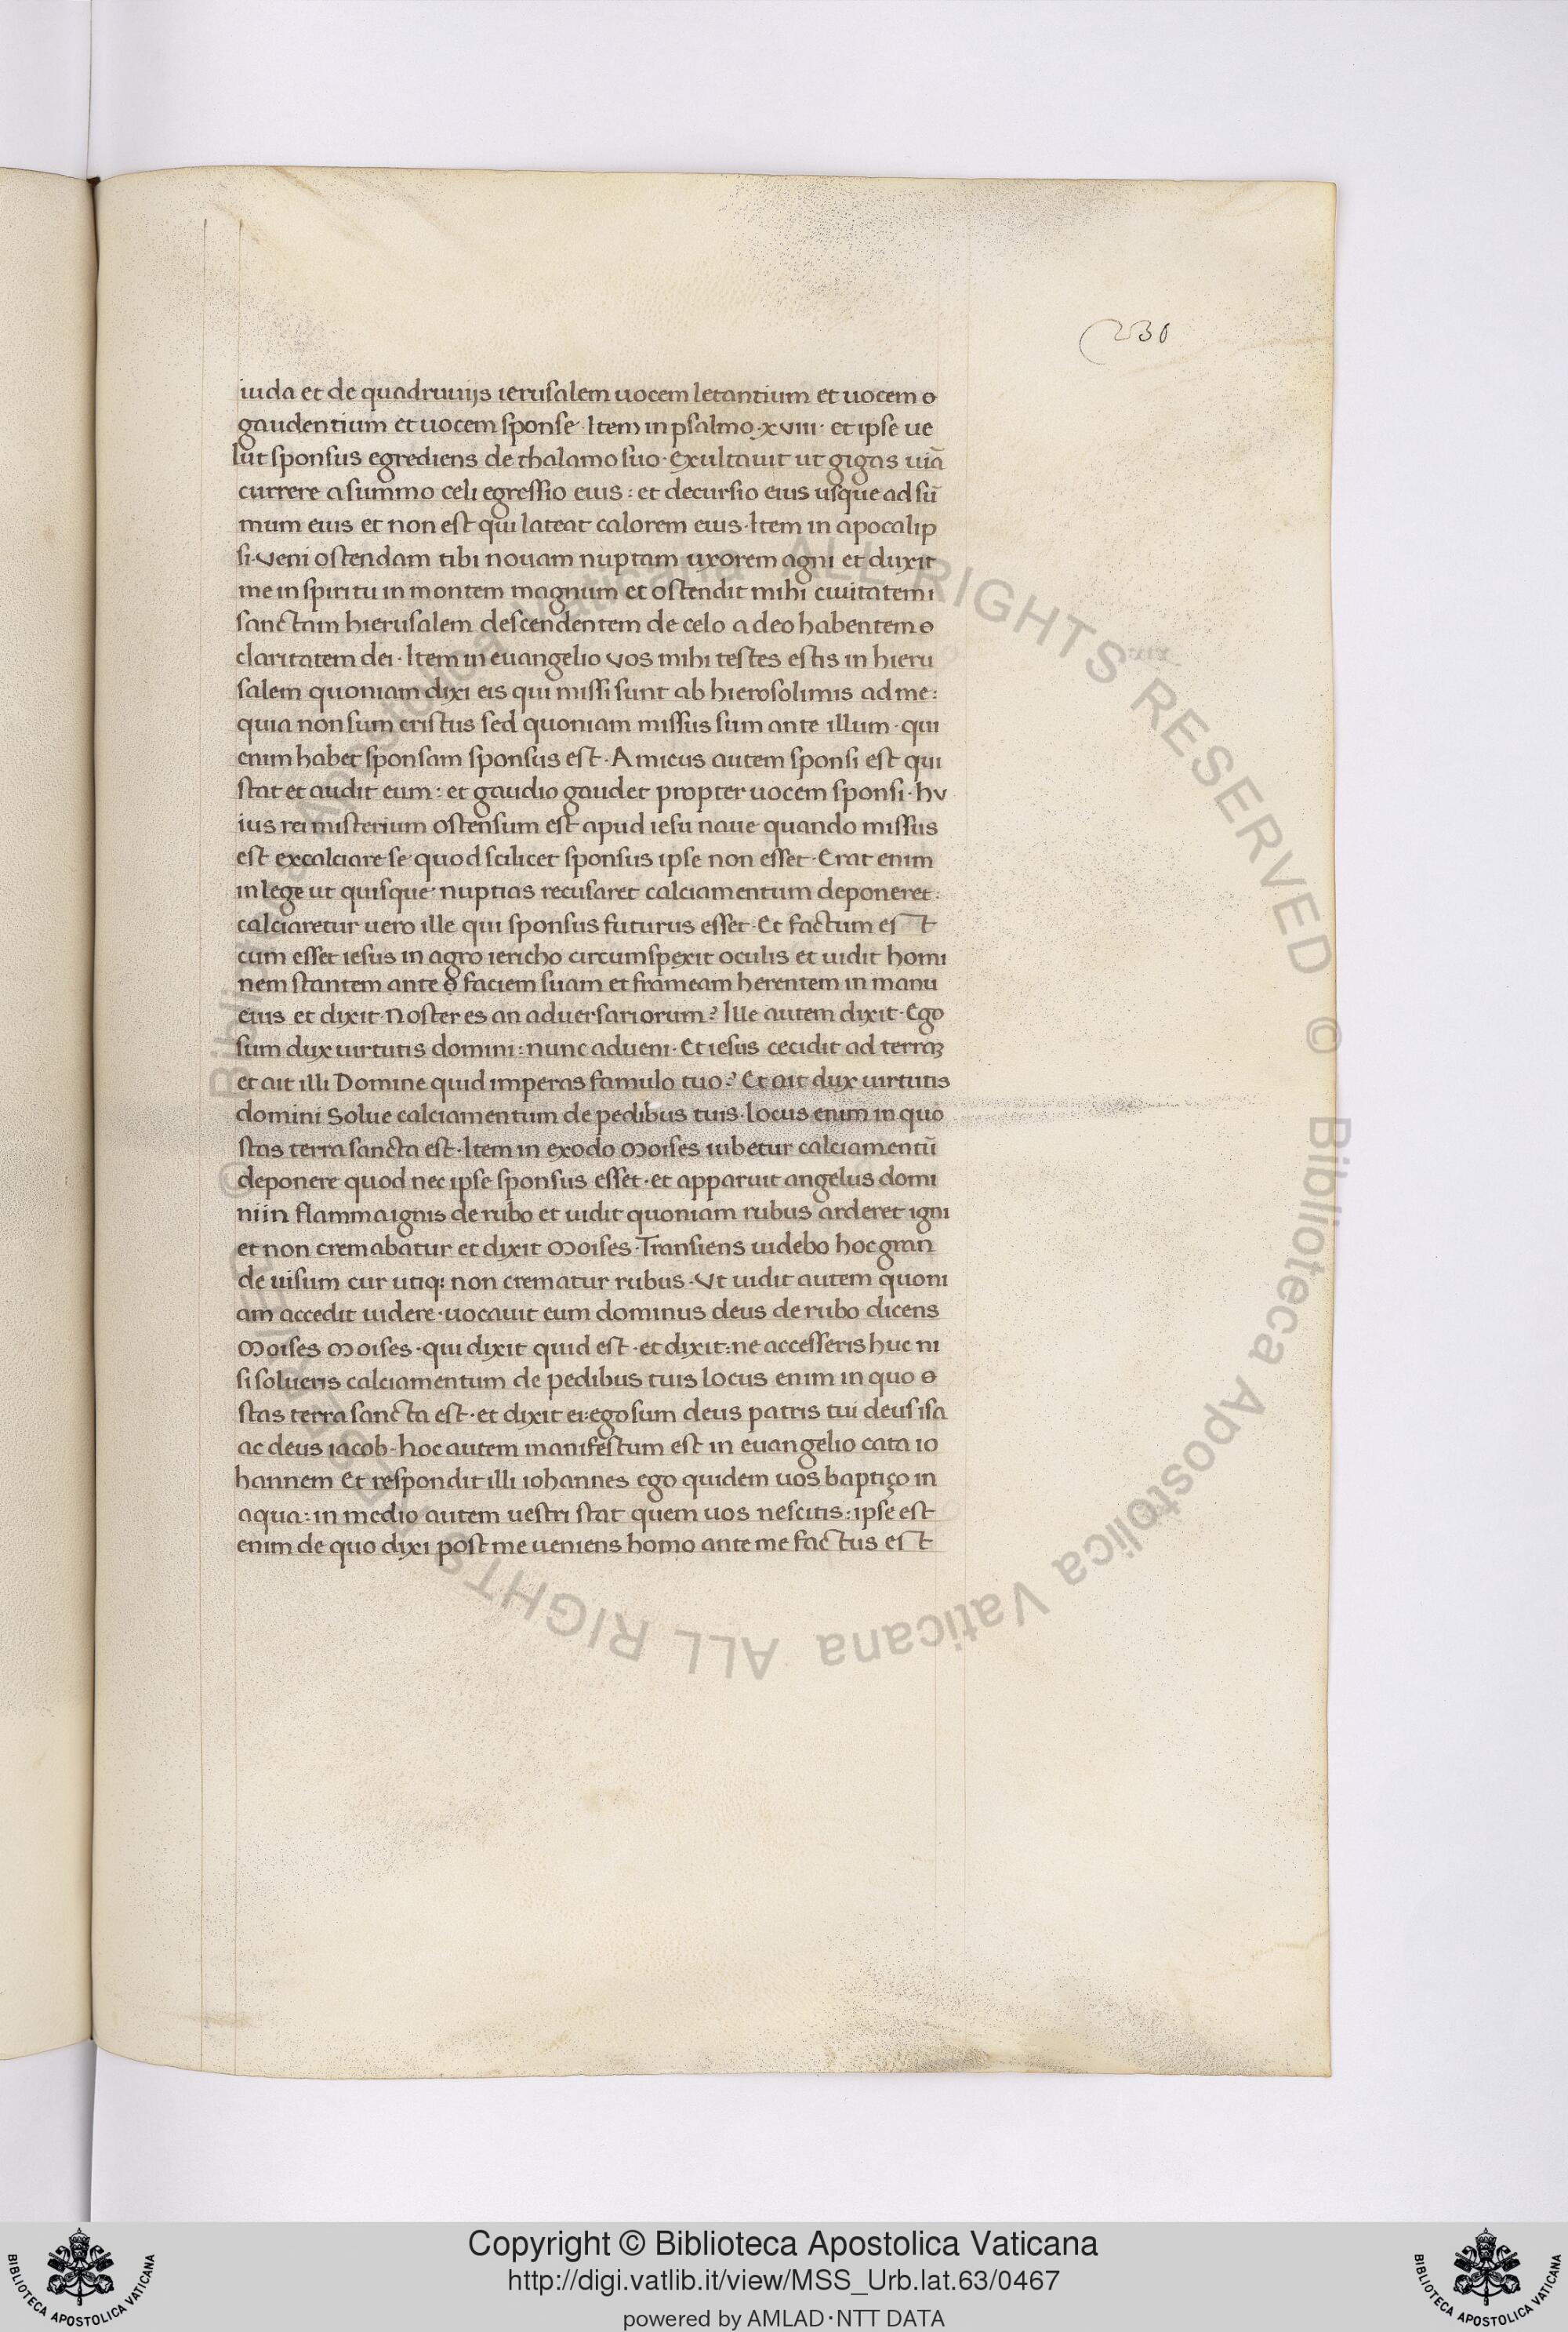 230
iuda et de quadruuijs ierusalem uocem letantium et uocem o
gaudentium et uocem sponse· Item in psalmo·xviii· et ipse ue
lut sponsus egrediens de thalamo suo· Exultauit ut gigas uiā
currere a summo celi egressio eius : et decursio eius usque ad sū
mum eius et non est qui lateat calorem eius· Item in apocalip
si· veni ostendam tibi nouam nuptam uxorem agni et duxit
me in spiritu in montem magnum et ostendit mihi ciuitatem i
sanctam hierusalem descendentem de celo a deo habentem o
claritatem dei· Item in euangelio vos mihi testes estis in hieru
salem quoniam dixi eis qui missi sunt ab hierosolimis ad me:
quia non sum cristus sed quoniam missus sum ante illum· qui
enim habet sponsam sponsus est· Amicus autem sponsi est qui
stat et audit eum : et gaudio gaudet propter uocem sponsi· hv
ius rei misterium ostensum est apud iesu naue quando missus
est excalciare se quod scilicet sponsus ipse non esset· Erat enim
in lege ut quisque nuptias recusaret calciamentum deponeret:
calciaretur uero ille qui sponsus futurus esset· Et factum est
cum esset iesus in agro iericho circumspexit oculis et uidit homi
nem stantem ante o faciem suam et frameam herentem in manu
eius et dixit· Noster es an aduersariorum? Ille autem dixit· Ego
sum dux uirtutis domini : nunc adueni· Et iesus cecidit ad terraꝫ
et ait illi Domine quid imperas famulo tuo? Et ait dux uirtutis
domini Solue calciamentum de pedibus tuis· locus enim in quo
stas terra sancta est· Item in exodo Moises iubetur calciamentū
deponere quod nec ipse sponsus esset· et apparuit angelus domi
ni in flamma ignis de rubo et uidit quoniam rubus arderet igni
et non cremabatur et dixit Moises· Transiens uidebo hoc gran
de uisum cur utiq: non crematur rubus· Vt uidit autem quoni
am accedit uidere· uocauit eum dominus deus de rubo dicens
Moises Moises· qui dixit quid est· et dixit: ne accesseris huc ni
si solueris calciamentum de pedibus tuis locus enim in quo o
stas terra sancta est· et dixit ei: ego sum deus patris tui deus isa
ac deus iacob· hoc autem manifestum est in euangelio cata io
hannem Et respondit illi iohannes ego quidem uos baptiço in
aqua : in medio autem uestri stat quem uos nescitis : ipse est
enim de quo dixi post me ueniens homo ante me factus est
© Biblioteca Apostolica Vaticana ALL RIGHTS RESERVED © Biblioteca Apostolica Vaticana ALL RIGHTS RESERVED
Copyright © Biblioteca Apostolica Vaticana
http://digi.vatlib.it/view/MSS_Urb.lat.63/0467
powered by AMLAD·NTT DATA
BIBLIOTECA APOSTOLICA VATICANA
BIBLIOTECA APOSTOLICA VATICANA